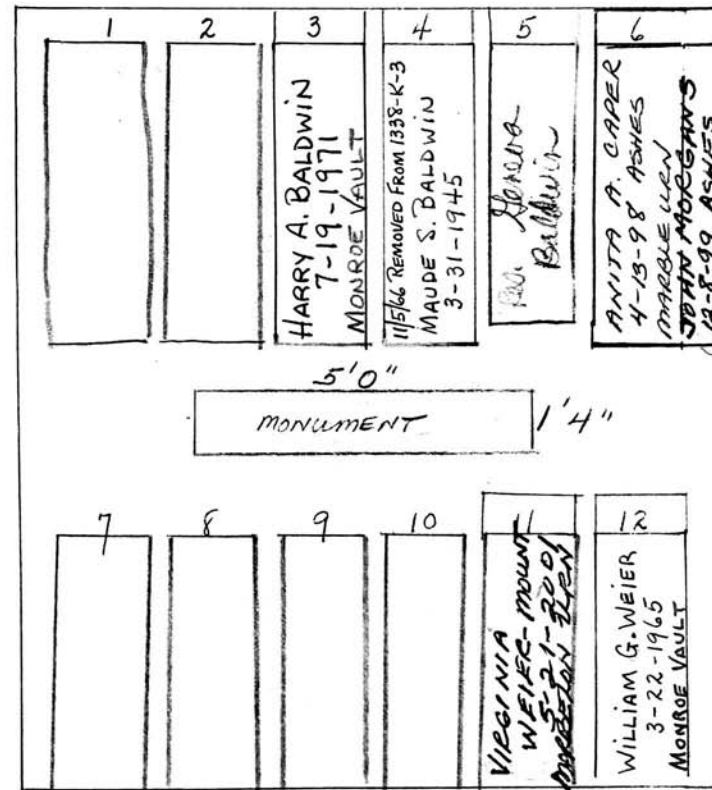 1
2
3
HARRY A. BALDWIN
7-19-1971
MONROE VAULT
4
11/5/66 REMOVED FROM 1338-K-3
MAUDE S. BALDWIN
3-31-1945
5
Res. Geneva
Baldwin
6
ANITA A. CAPER
4-13-98 ASHES
MARBLE URN
JOHN MORGANS
12-8-99 ASHES
5'0"
MONUMENT
1'4"
7
8
9
10
11
VIRGINIA
WEIER-MOUNT
5-21-2001
URN
12
WILLIAM G. WEIER
3-22-1965
MONROE VAULT